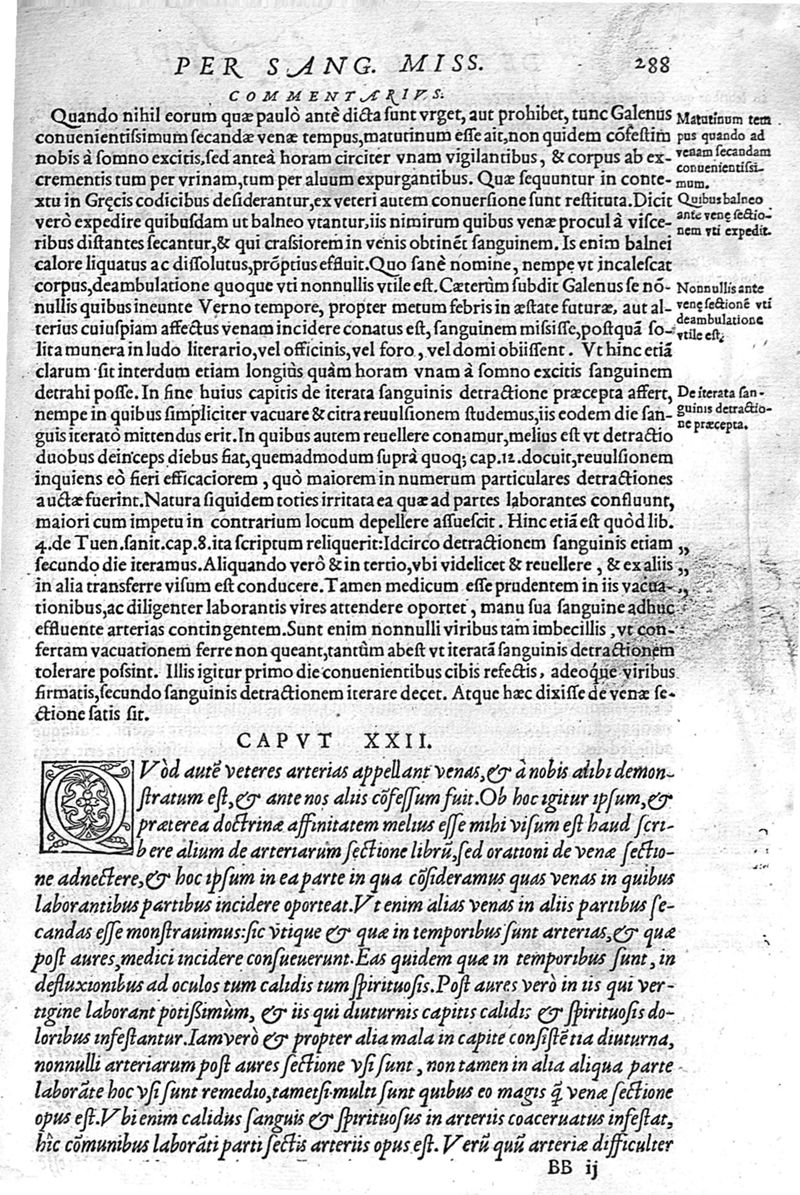 PER SANG. MISS. 288
COMMENTARIVS.
Quando nihil eorum quæ paulò antè dicta sunt vrget, aut prohibet, tunc Galenus
conuenientissimum secandæ venæ tempus,matutinum esse ait,non quidem cōfestim
nobis à somno excitis,sed anteà horam circiter vnam vigilantibus, & corpus ab ex-
crementis tum per vrinam,tum per aluum expurgantibus. Quæ sequuntur in conte-
xtu in Gręcis codicibus desiderantur,ex veteri autem conuersione sunt restituta. Dicit
verò expedire quibusdam ut balneo vtantur,iis nimirum quibus venæ procul à visce-
ribus distantes secantur,& qui crassiorem in venis obtinēt sanguinem. Is enim balnei
calore liquatus ac dissolutus,prōptius effluit. Quo sanè nomine, nempe vt incalescat
corpus,deambulatione quoque vti nonnullis vtile est. Cæterùm subdit Galenus se nō-
nullis quibus ineunte Verno tempore, propter metum febris in æstate futuræ, aut al-
terius cuiuspiam affectus venam incidere conatus est, sanguinem misisse,postquā so-
lita munera in ludo literario,vel officinis,vel foro, vel domi obiissent. Vt hinc etiā
clarum sit interdum etiam longiùs quàm horam vnam à somno excitis sanguinem
detrahi posse. In fine huius capitis de iterata sanguinis detractione præcepta affert,
nempe in quibus simpliciter vacuare & citra reuulsionem studemus,iis eodem die san-
guis iteratò mittendus erit. In quibus autem reuellere conamur,melius est vt detractio
duobus deinceps diebus fiat,quemadmodum suprà quoq; cap.12.docuit,reuulsionem
inquiens eò fieri efficaciorem, quò maiorem in numerum particulares detractiones
auctæ fuerint. Natura siquidem toties irritata ea quæ ad partes laborantes confluunt,
maiori cum impetu in contrarium locum depellere assuescit. Hinc etiā est quòd lib.
4. de Tuen.sanit.cap.8.ita scriptum reliquerit: Idcirco detractionem sanguinis etiam „
secundo die iteramus. Aliquando verò & in tertio,vbi videlicet & reuellere, & ex aliis „
in alia transferre visum est conducere. Tamen medicum esse prudentem in iis vacua- „
tionibus,ac diligenter laborantis vires attendere oportet, manu sua sanguine adhuc
effluente arterias contingentem. Sunt enim nonnulli viribus tam imbecillis, vt con-
fertam vacuationem ferre non queant,tantùm abest vt iteratā sanguinis detractionem
tolerare possint. Illis igitur primo die conuenientibus cibis refectis, adeoq́ue viribus
firmatis,secundo sanguinis detractionem iterare decet. Atque hæc dixisse de venæ se-
ctione satis sit.
Matutinum tem
pus quando ad
venam secandam
conuenientissi-
mum.
Quibus balneo
ante venę sectio-
nem vti expedit.
Nonnullis ante
venę sectionē vti
deambulatione
vtile est.
De iterata san-
guinis detractio-
ne præcepta.
CAPVT XXII.
QVòd autē veteres arterias appellant venas,& à nobis alibi demon-
stratum est,& ante nos aliis cōfessum fuit. Ob hoc igitur ipsum,&
præterea doctrinæ affinitatem melius esse mihi visum est haud scri-
bere alium de arteriarum sectione librū,sed orationi de venæ sectio-
ne adnectere,& hoc ipsum in ea parte in qua cōsideramus quas venas in quibus
laborantibus partibus incidere oporteat. Vt enim alias venas in aliis partibus se-
candas esse monstrauimus: sic vtique & quæ in temporibus sunt arterias,& quæ
post aures,medici incidere consueuerunt. Eas quidem quæ in temporibus sunt, in
defluxionibus ad oculos tum calidis tum spirituosis. Post aures verò in iis qui ver-
tigine laborant potißimùm, & iis qui diuturnis capitis calidis & spirituosis do-
loribus infestantur. Iamverò & propter alia mala in capite consistētia diuturna,
nonnulli arteriarum post aures sectione vsi sunt, non tamen in alia aliqua parte
laborāte hoc vsi sunt remedio,tametsi multi sunt quibus eo magis q̄ venæ sectione
opus est. Vbi enim calidus sanguis & spirituosus in arteriis coaceruatus infestat,
hîc cōmunibus laborāti parti sectis arteriis opus est. Verū quū arteriæ difficulter
BB ij